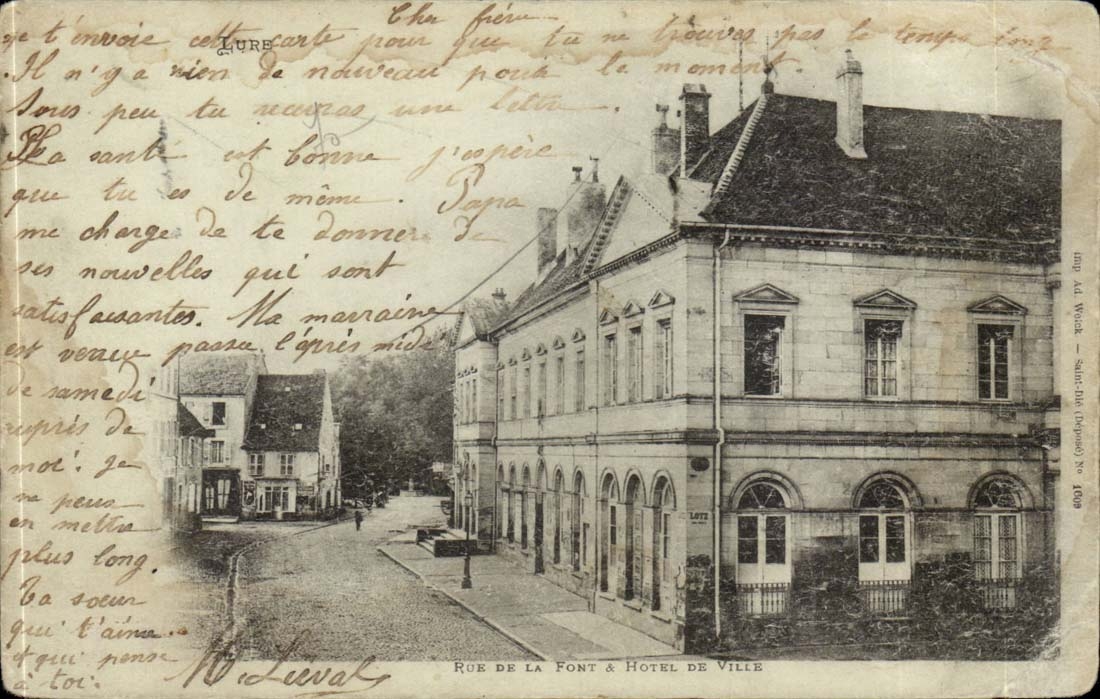 Cher frère
je t'envoie cette carte pour que tu ne trouves pas le temps long
LURE
Il n'y a rien de nouveau pour le moment.
Sous peu tu recevras une lettre.
Ma santé est bonne j'espère
que tu es de même. Papa
me charge de te donner de
ses nouvelles qui sont
satisfaisantes. Ma marraine
est venue passer l'après midi
de samedi
auprès de
moi. Je
ne peus
en mettre
plus long.
Ta sœur
qui t'aime
et qui pense
à toi.
LOTZ
imp Ad Weick — Saint-Dié (Déposé) No 1609
RUE DE LA FONT & HOTEL DE VILLE